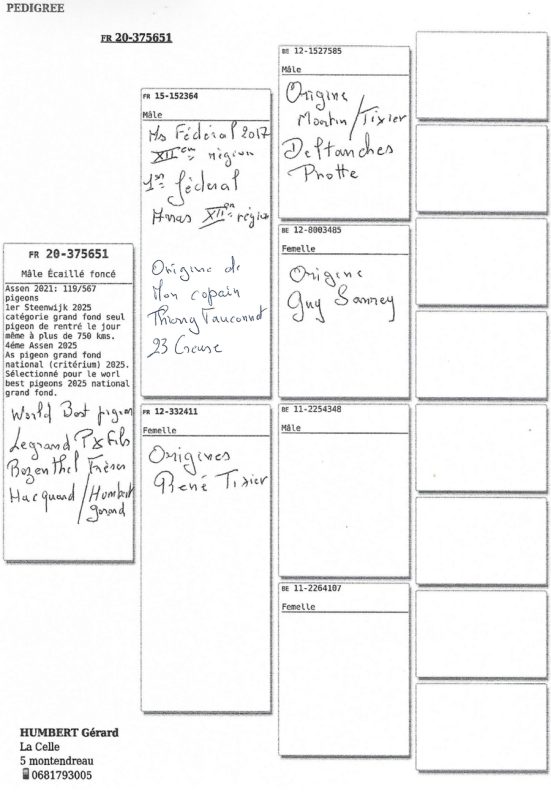 PEDIGREE
FR 20-375651
FR 20-375651
Mâle Écaillé foncé
Assen 2021: 119/567
pigeons
1er Steenwijk 2025
catégorie grand fond seul
pigeon de rentré le jour
même à plus de 750 kms.
4éme Assen 2025
As pigeon grand fond
national (critérium) 2025.
Sélectionné pour le worl
best pigeons 2025 national
grand fond.
World Best pigeon
Legrand P & Fils
Frères
Hacquard / Humbert
gerard
FR 15-152364
Mâle
As Fédéral 2017
XII em région
1er fédéral
XII em région
Origine de
Mon copain
Thierry Fauconnet
23 Creuse
FR 12-332411
Femelle
Origines
René Tixier
BE 12-1527585
Mâle
Origine
Martin / Tixier
BE 12-8003485
Femelle
Origine
Guy
BE 11-2254348
Mâle
BE 11-2264107
Femelle
HUMBERT Gérard
La Celle
5 montendreau
0681793005